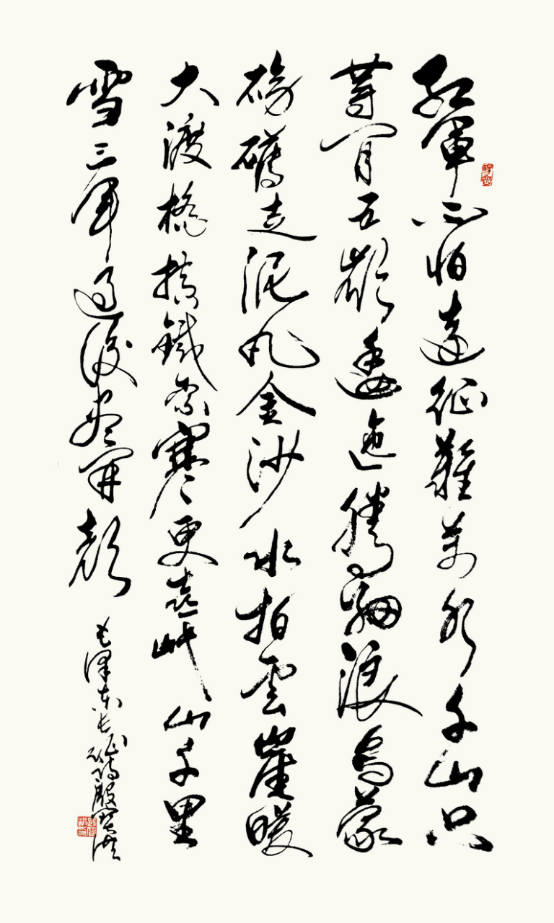 紅軍不怕遠征難萬水千山只
等閒五嶺逶迤騰細浪烏蒙
磅礴走泥丸金沙水拍雲崖暖
大渡橋橫鐵索寒更喜岷山千里
雪三軍過後盡開顏
毛澤東長